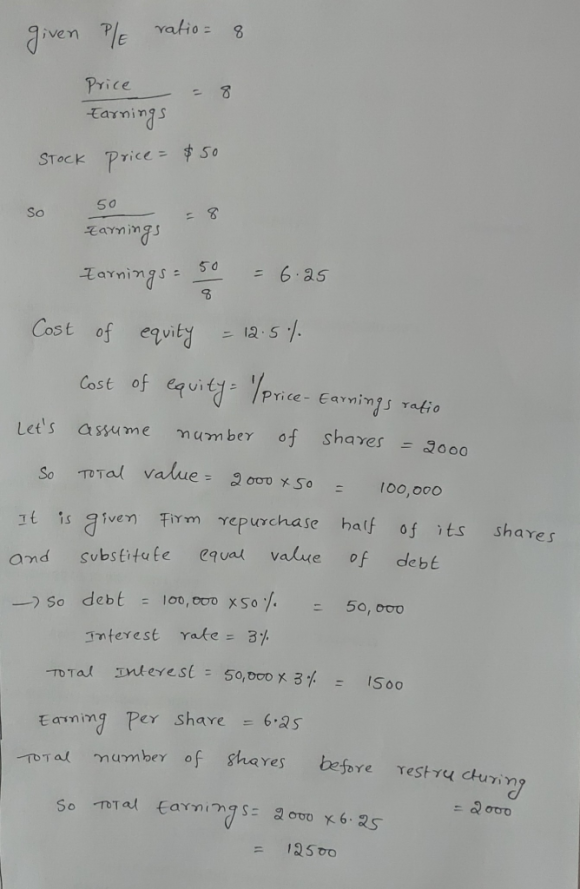 given P/E ratio = 8
Price / Earnings = 8
Stock price = $ 50
So 50 / Earnings = 8
Earnings = 50 / 8 = 6.25
Cost of equity = 12.5 %.
Cost of equity = 1/price-Earnings ratio
Let's assume number of shares = 2000
So Total value = 2000 x 50 = 100,000
It is given Firm repurchase half of its shares
and substitute equal value of debt
→ So debt = 100,000 x 50 %. = 50,000
Interest rate = 3%
Total Interest = 50,000 x 3% = 1500
Earning Per share = 6.25
Total number of shares before restructuring
= 2000
So Total Earnings = 2000 x 6.25
= 12500